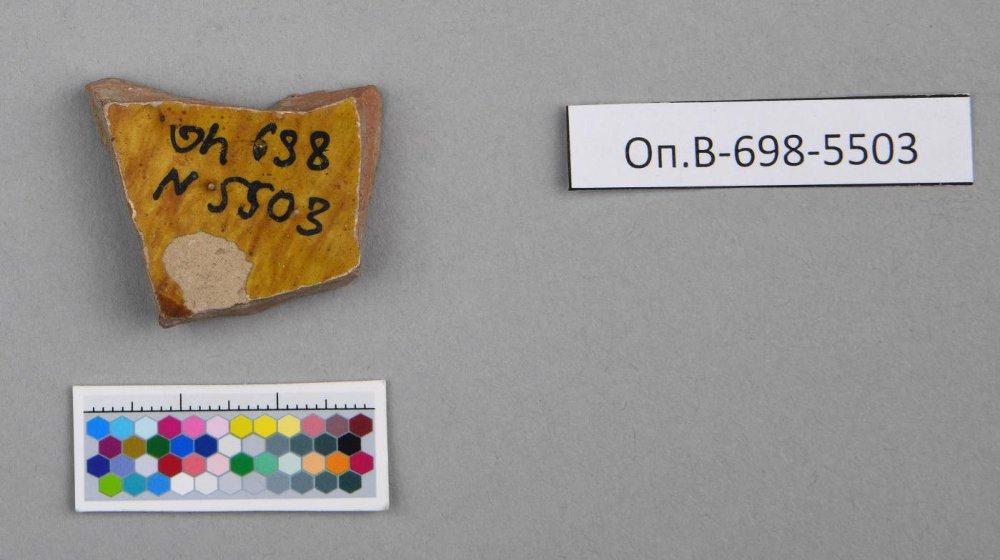 Оп 698
N 5503
Оп.В-698-5503